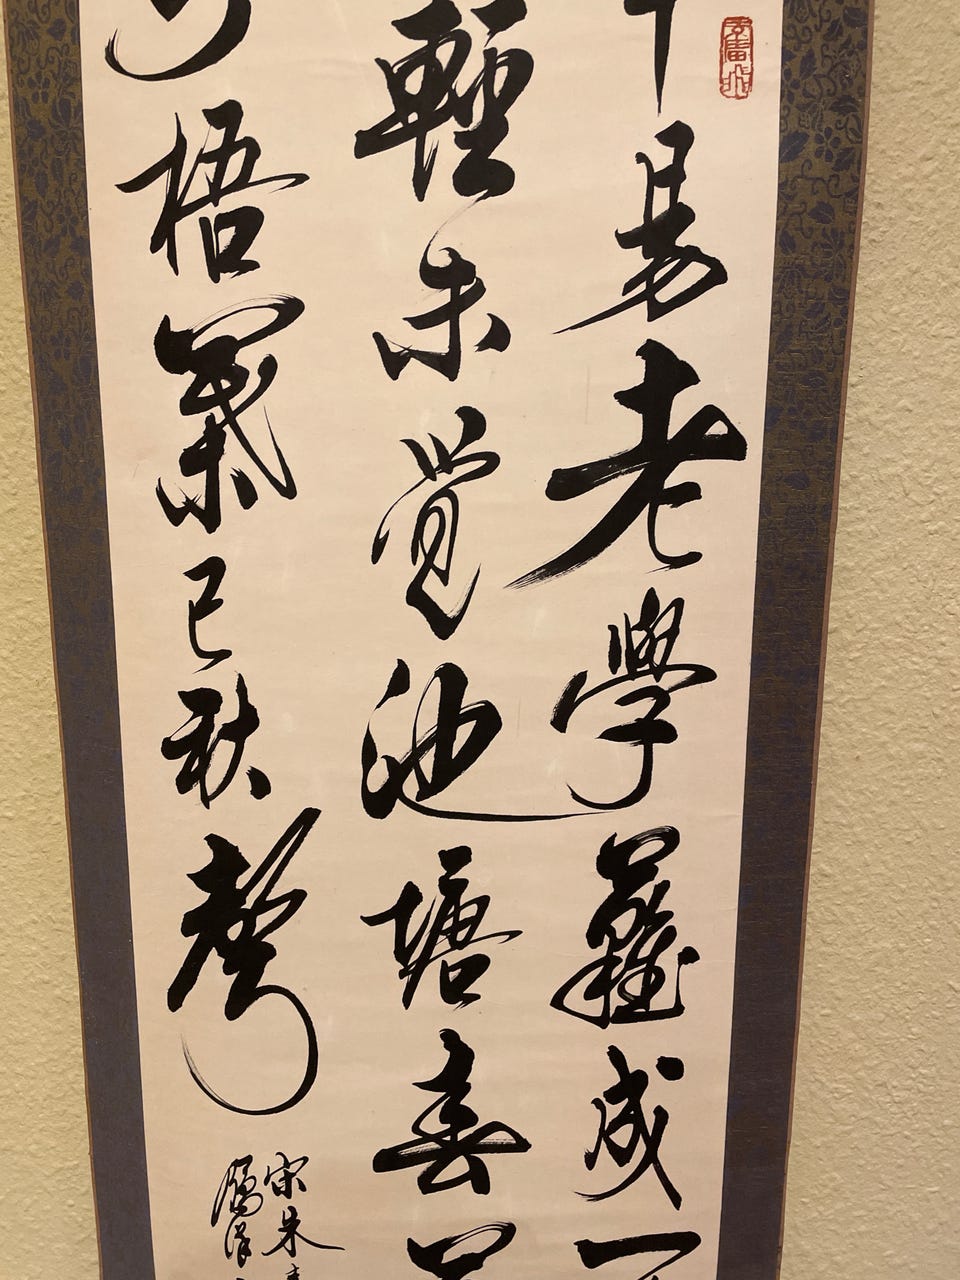 易老學難成一
輕未覺池塘春
梧葉已秋聲
宋朱